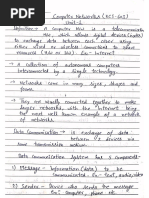 Computer Networks (KCS-603)
Unit-1
Definition:- A Computer N/w is a telecommunication
n/w, which allow digital devices (nodes)
to exchange data between each other using
either wired or wireless connections to share
resources
→ A collection of autonomous computers
interconnected by a single technology.
→ Networks come in many sizes, shapes and
forms.
→ They are usually connected together to make
larger networks, with the Internet being
the most well-known example of a network
of networks.
Data Communication is exchange of data
between two devices via
some transmission medium.
Data Communication System has 5 components
1) Message - Information (data) to be
communicated. Ex- Text, audio, video
2) Sender - Device who sends the message
Ex- Computer, phone etc